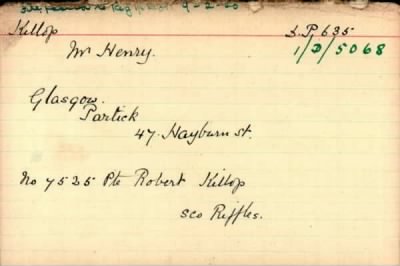 9-2-20
Killop
S.P. 635
Mr Henry.
1/D/5068
Glasgow.
Partick
47. Hayburn st.
No 7535 Pte Robert Killop
Sco Riffles.